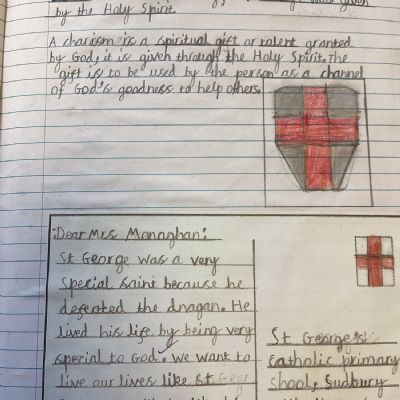 by the Holy Spirit.
A charism is a spiritual gift or talent granted
by God, it is given through the Holy Spirit. The
gift is to be used by the person as a channel
of God's goodness to help others.
Dear Mrs Monaghan:
St. George was a very
special saint because he
defeated the dragan. He
lived his life by being very
special to God. We want to
live our lives like St. Geor
St George's
Catholic primary
shool, Sudbury